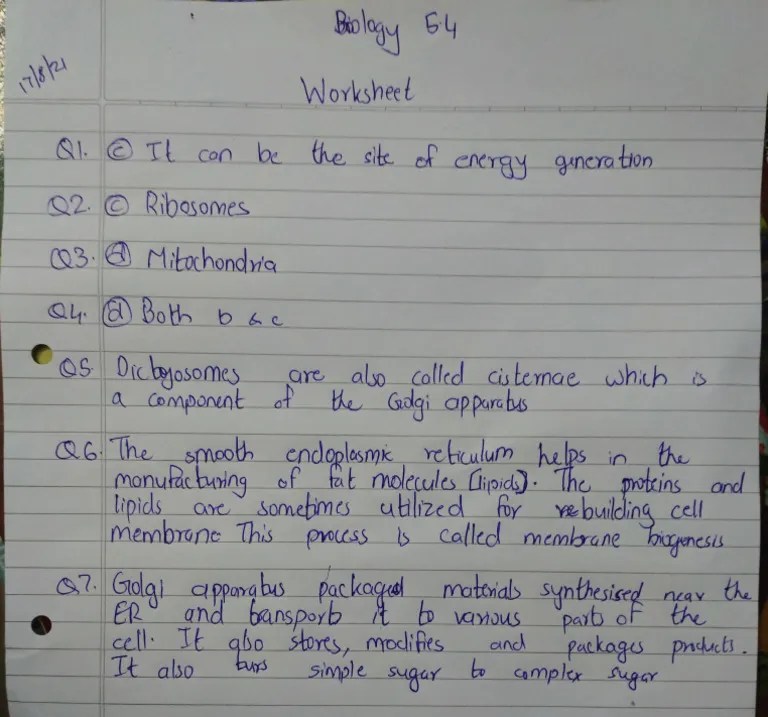 Biology 5.4
17/8/21
Worksheet
Q1. (c) It can be the site of energy generation
Q2. (c) Ribosomes
Q3. (d) Mitochondria
Q4. (d) Both b & c
Q5. Dictyosomes are also called cisternae which is
a component of the Golgi apparatus
Q6. The smooth endoplasmic reticulum helps in the
manufacturing of fat molecules [lipids]. The proteins and
lipids are sometimes utilized for rebuilding cell
membrane This process is called membrane biogenesis
Q7. Golgi apparatus packaged materials synthesised near the
ER and transports it to various part of the
cell. It also stores, modifies and packages products.
It also turs simple sugar to complex sugar